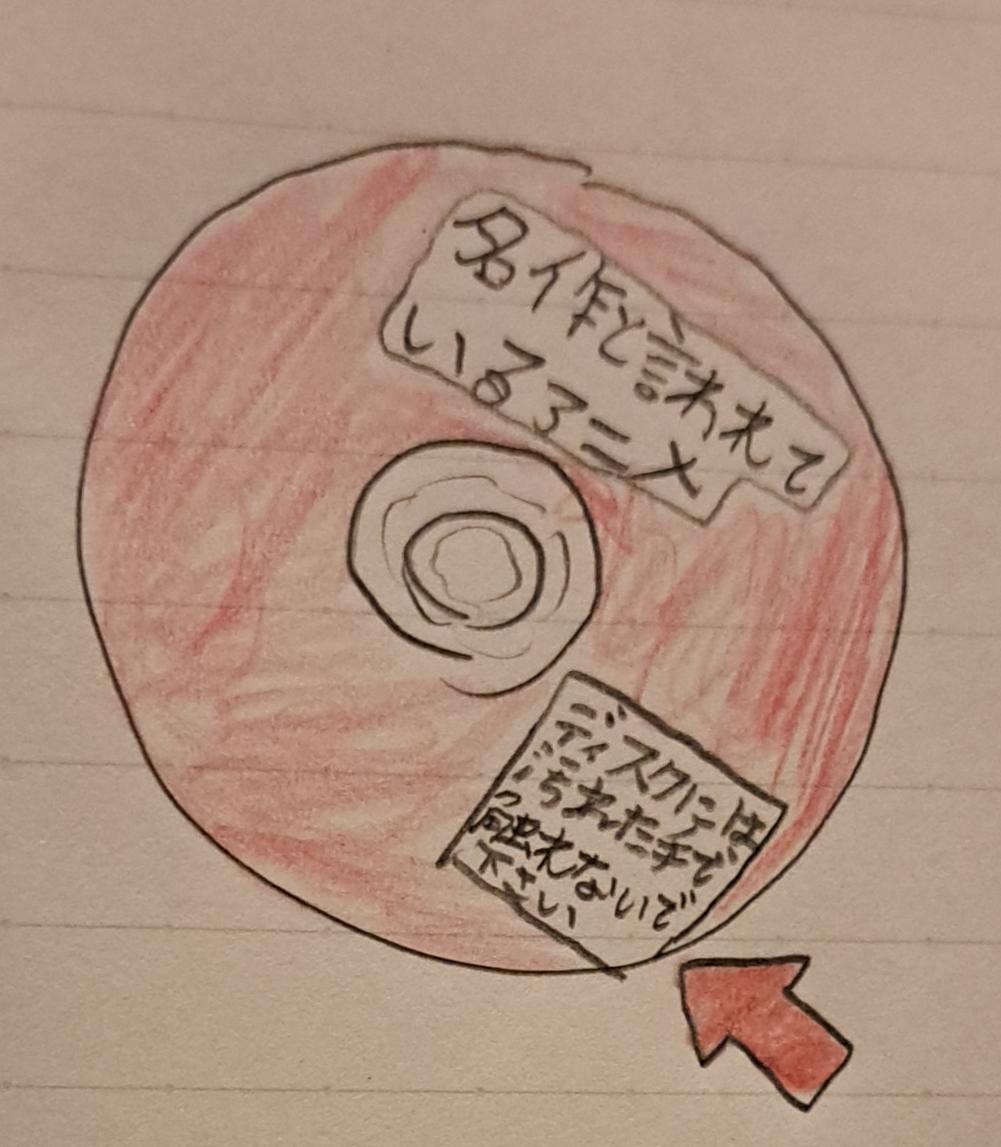 名作と言われて
いるアニメ
ディスクには
汚れた手で
触れないで
下さい